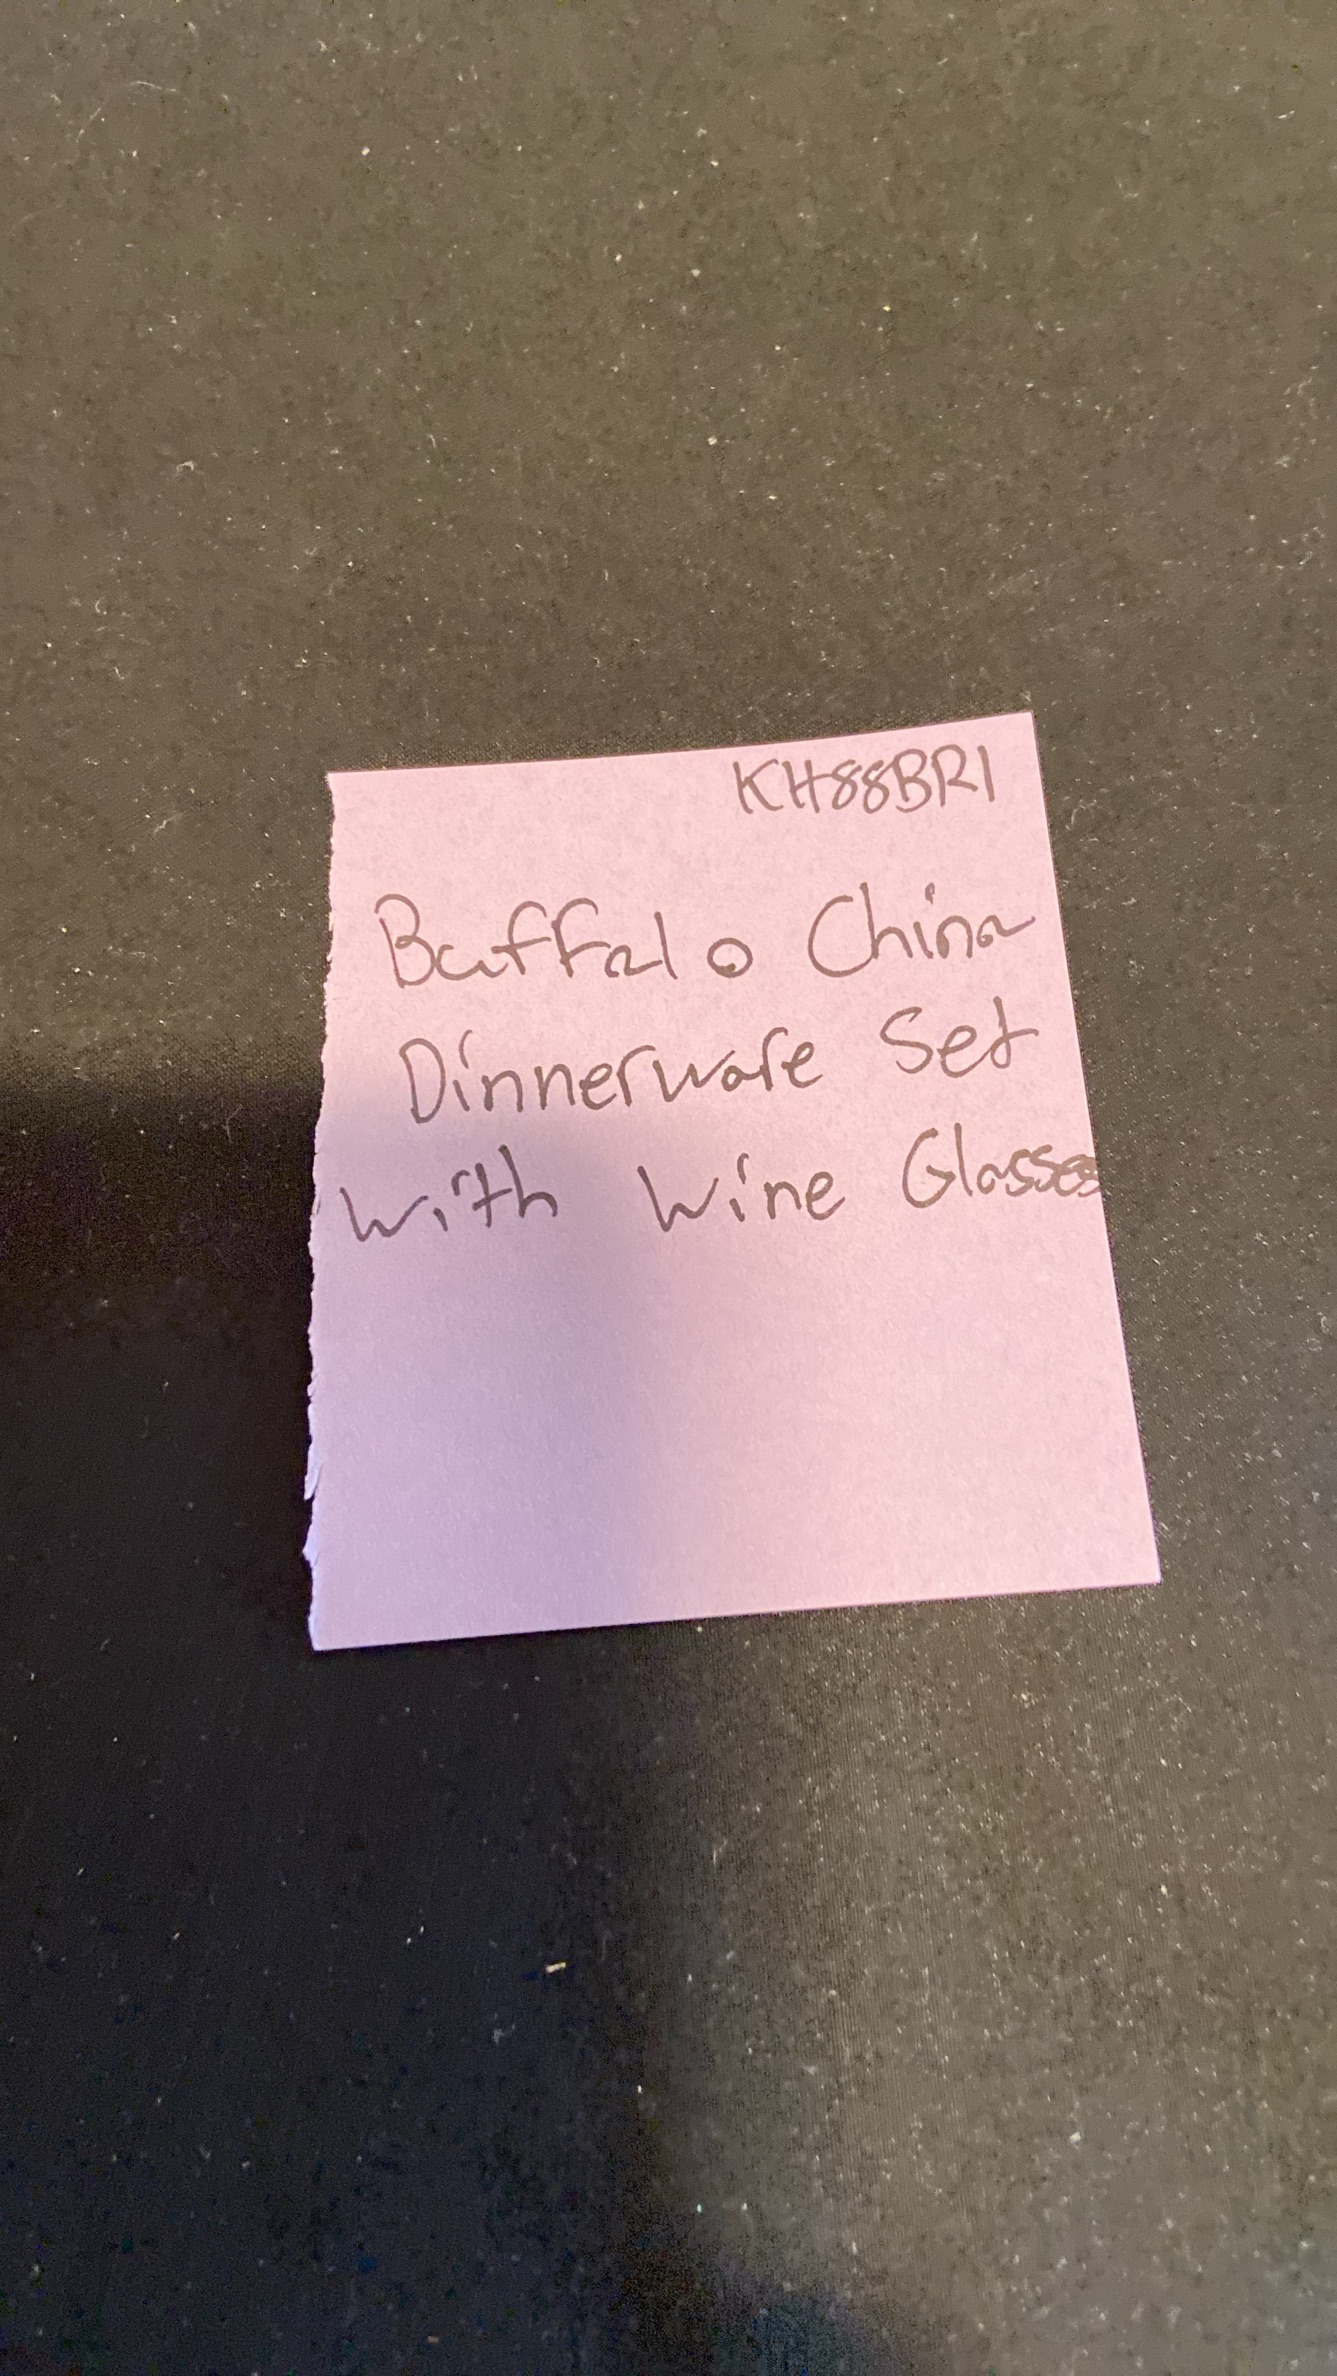 KH88BR1
Buffalo China
Dinnerware Set
with Wine Glasses